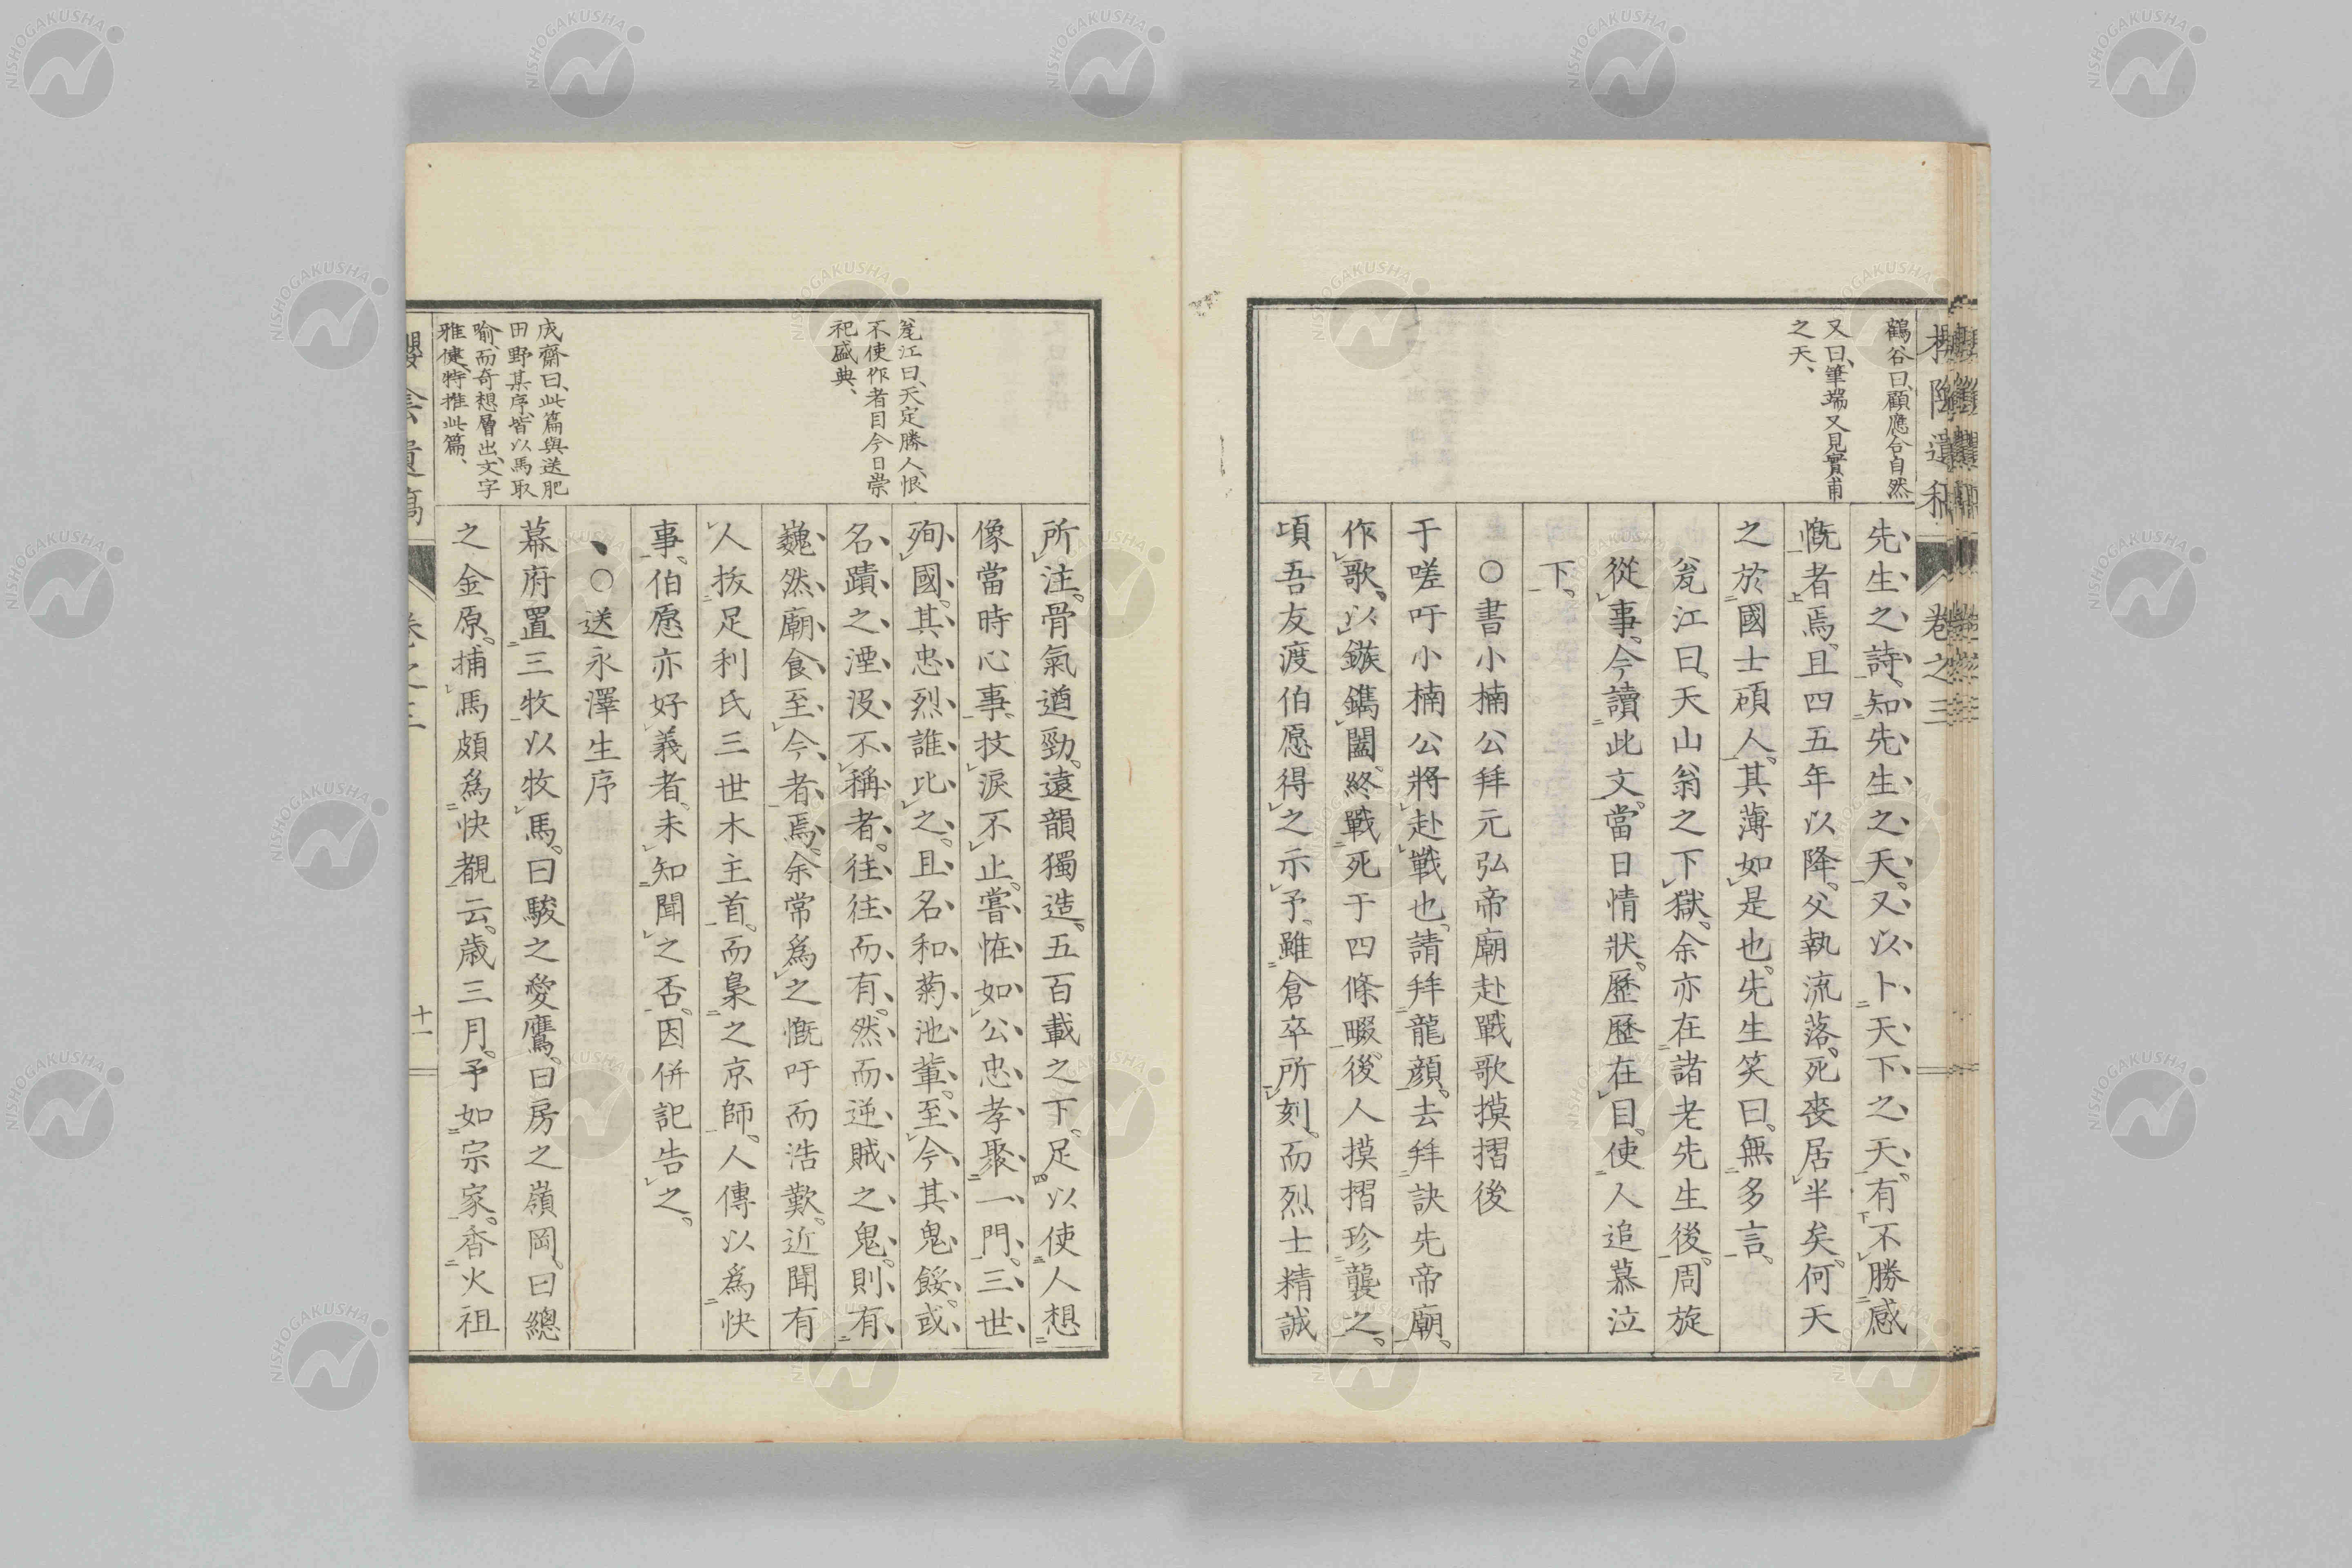 鶴谷曰、顧應合自然
又曰、筆端又見實甫
之天、
卷之三
先生之詩、知先生之天。又以卜天下之天。有不勝感
慨者焉。且四五年以降。父執流落。死喪居半矣。何天
之於國士碩人。其薄如是也。先生笑曰。無多言。
瓮江曰。天山翁之下獄。余亦在諸老先生後。周旋
從事。今讀此文。當日情狀。歷歷在目。使人追慕泣
下。
○書小楠公拜元弘帝廟赴戰歌摸摺後
于嗟吁小楠公將赴戰也。請拜龍顏。去拜訣先帝廟。
作歌。以鏃鐫闔。終戰死于四條畷。後人摸摺珍襲之。
頃吾友渡伯愿得之示予。雖倉卒所刻。而烈士精誠
瓮江曰、天定勝人、恨
不使作者目今日崇
祀盛典、
成齋曰、此篇與送肥
田野某序、皆以馬取
喻、而奇想層出、文字
雅健、特推此篇、
所注。骨氣遒勁。遠韻獨造。五百載之下。足以使人想
像當時心事。抆淚不止。嘗恠如公忠孝聚一門。三世
殉國。其忠烈誰比之。且名和菊池輩。至今其鬼餒。或
名蹟之湮沒不稱者。往往而有。然而逆賊之鬼。則有
巍然廟食至今者焉。余常爲之慨吁而浩歎。近聞有
人拔足利氏三世木主首。而梟之京師。人傳以爲快
事。伯愿亦好義者。未知聞之否。因併記告之。
○送永澤生序
幕府置三牧以牧馬。曰駿之愛鷹。曰房之嶺岡。曰總
之金原。捕馬頗爲快覩云。歲三月。予如宗家。香火祖
十一